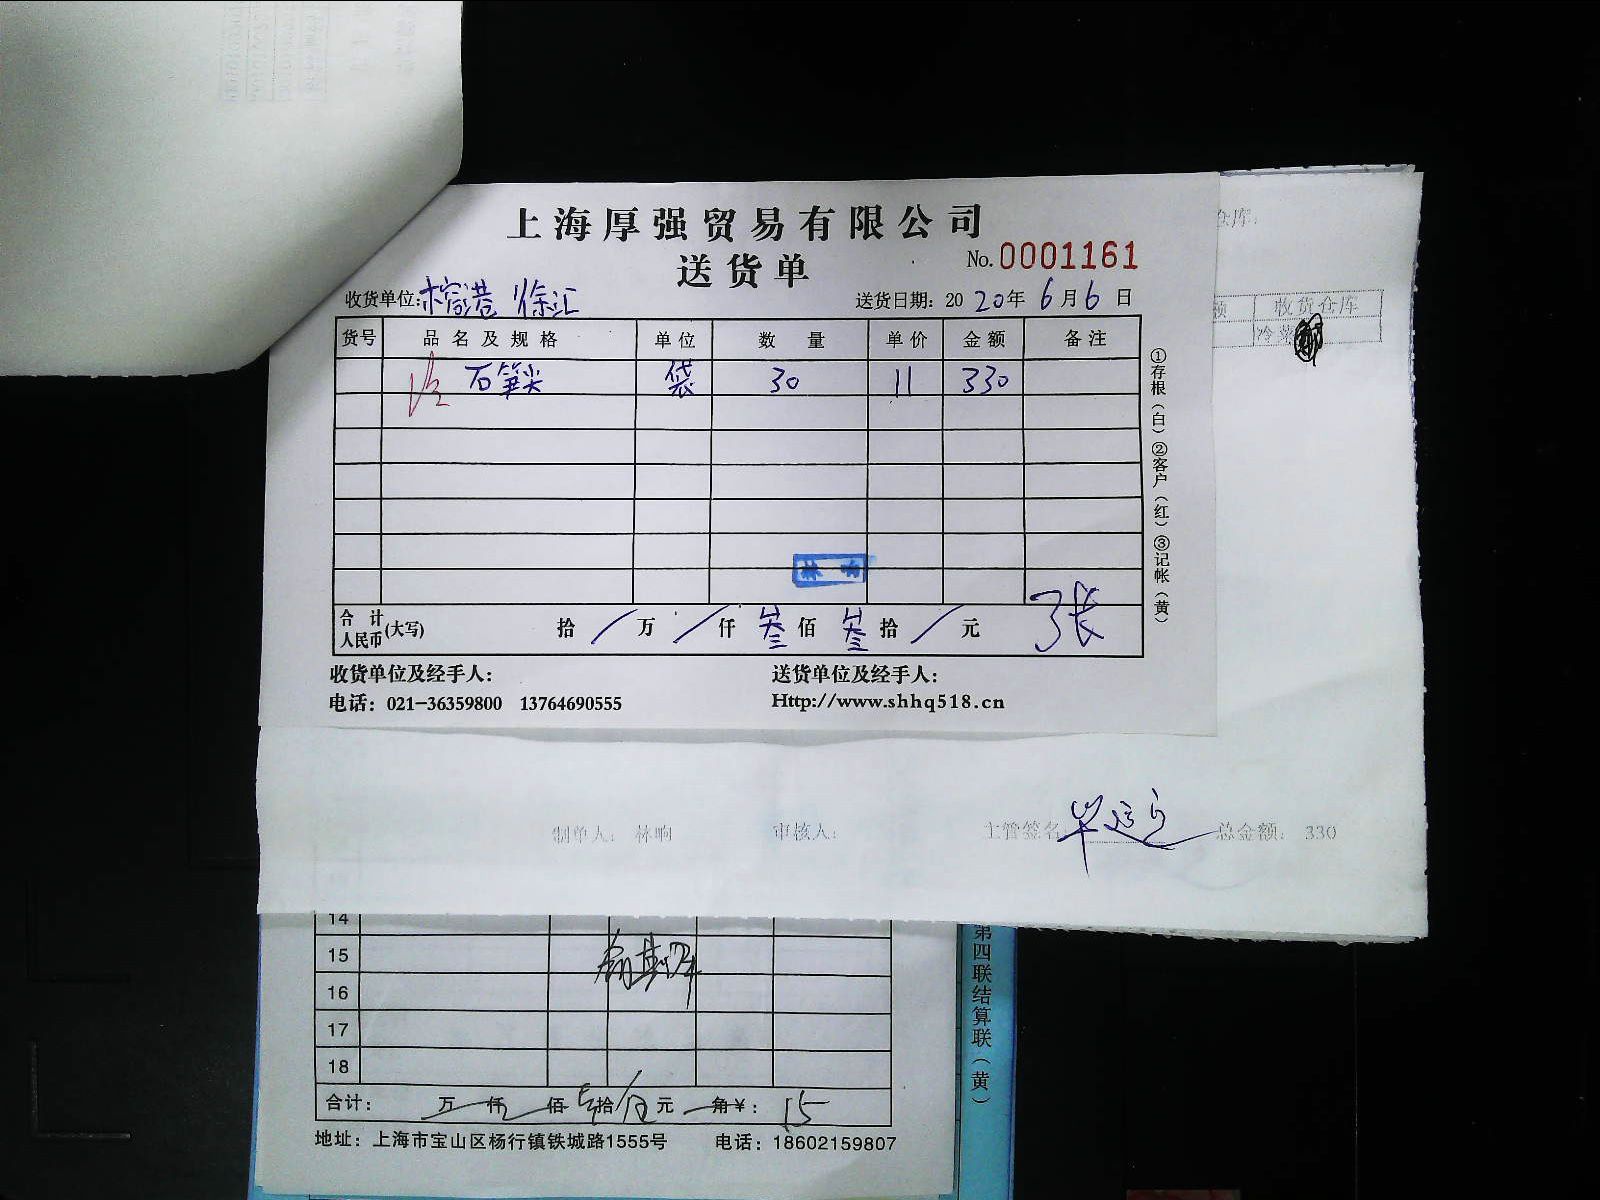 上海厚强贸易有限公司
送货单
No.0001161
收货单位:榕港 徐汇
送货日期: 2020年6月6日
货号 品名及规格 单位 数量 单价 金额 备注
石笋尖 袋 30 11 330
林响
合计人民币(大写) 拾 / 万 / 仟 叁 佰 叁 拾 / 元
张
收货单位及经手人: 送货单位及经手人:
电话: 021-36359800 13764690555 Http://www.shhq518.cn
①存根(白)②客户(红)③记帐(黄)
仓库:
额 收货仓库
冷
制单人: 林响 审核人: 主管签名: 总金额: 330
14
15
16
17
18
合计: 万 仟 佰 拾 元 角¥: 15
地址: 上海市宝山区杨行镇铁城路1555号 电话: 18602159807
第四联结算联(黄)